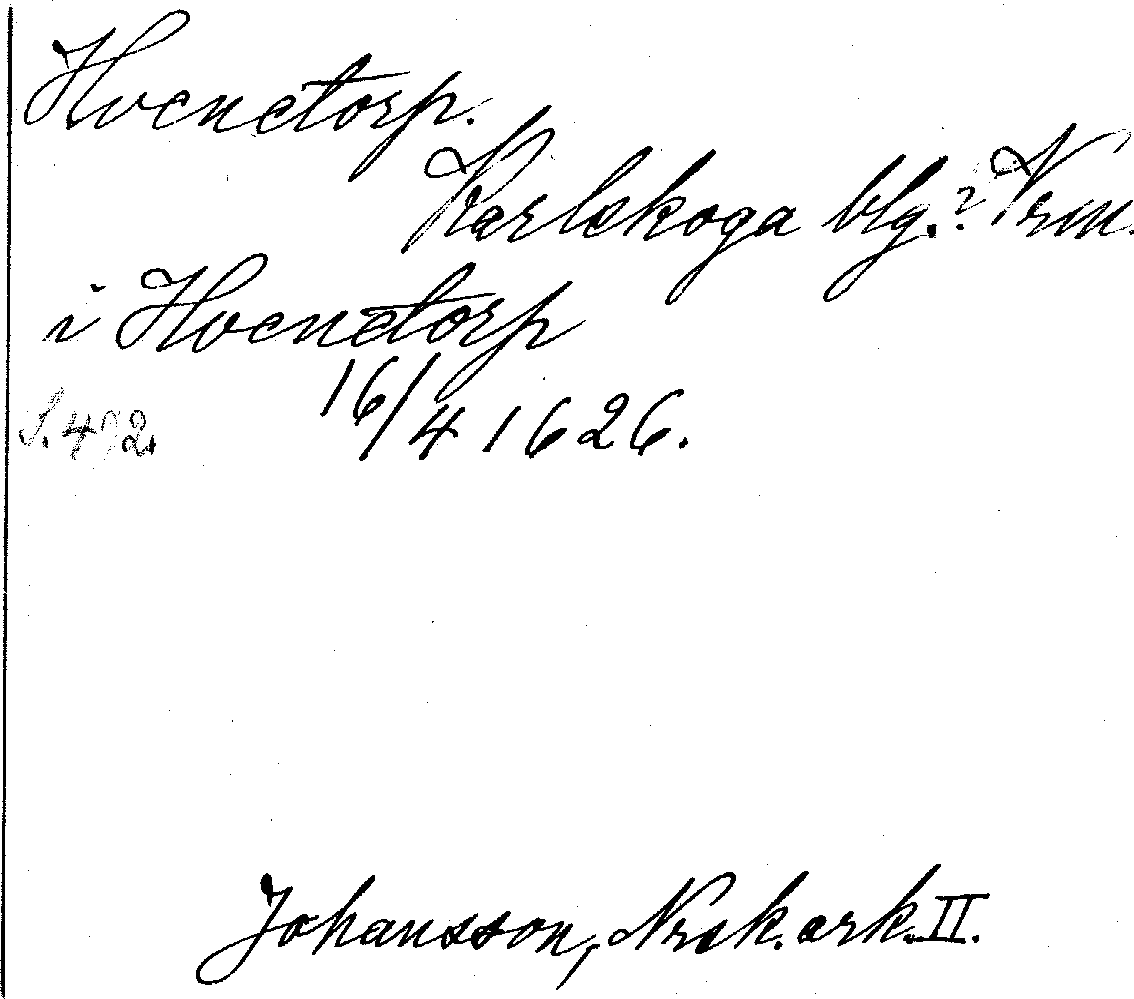 Hvenetorp.
Karlskoga blg.? Nrm.
i Hvenetorp
16/4 1626.
S. 492.
Johansson, Nrsk. ark. II.